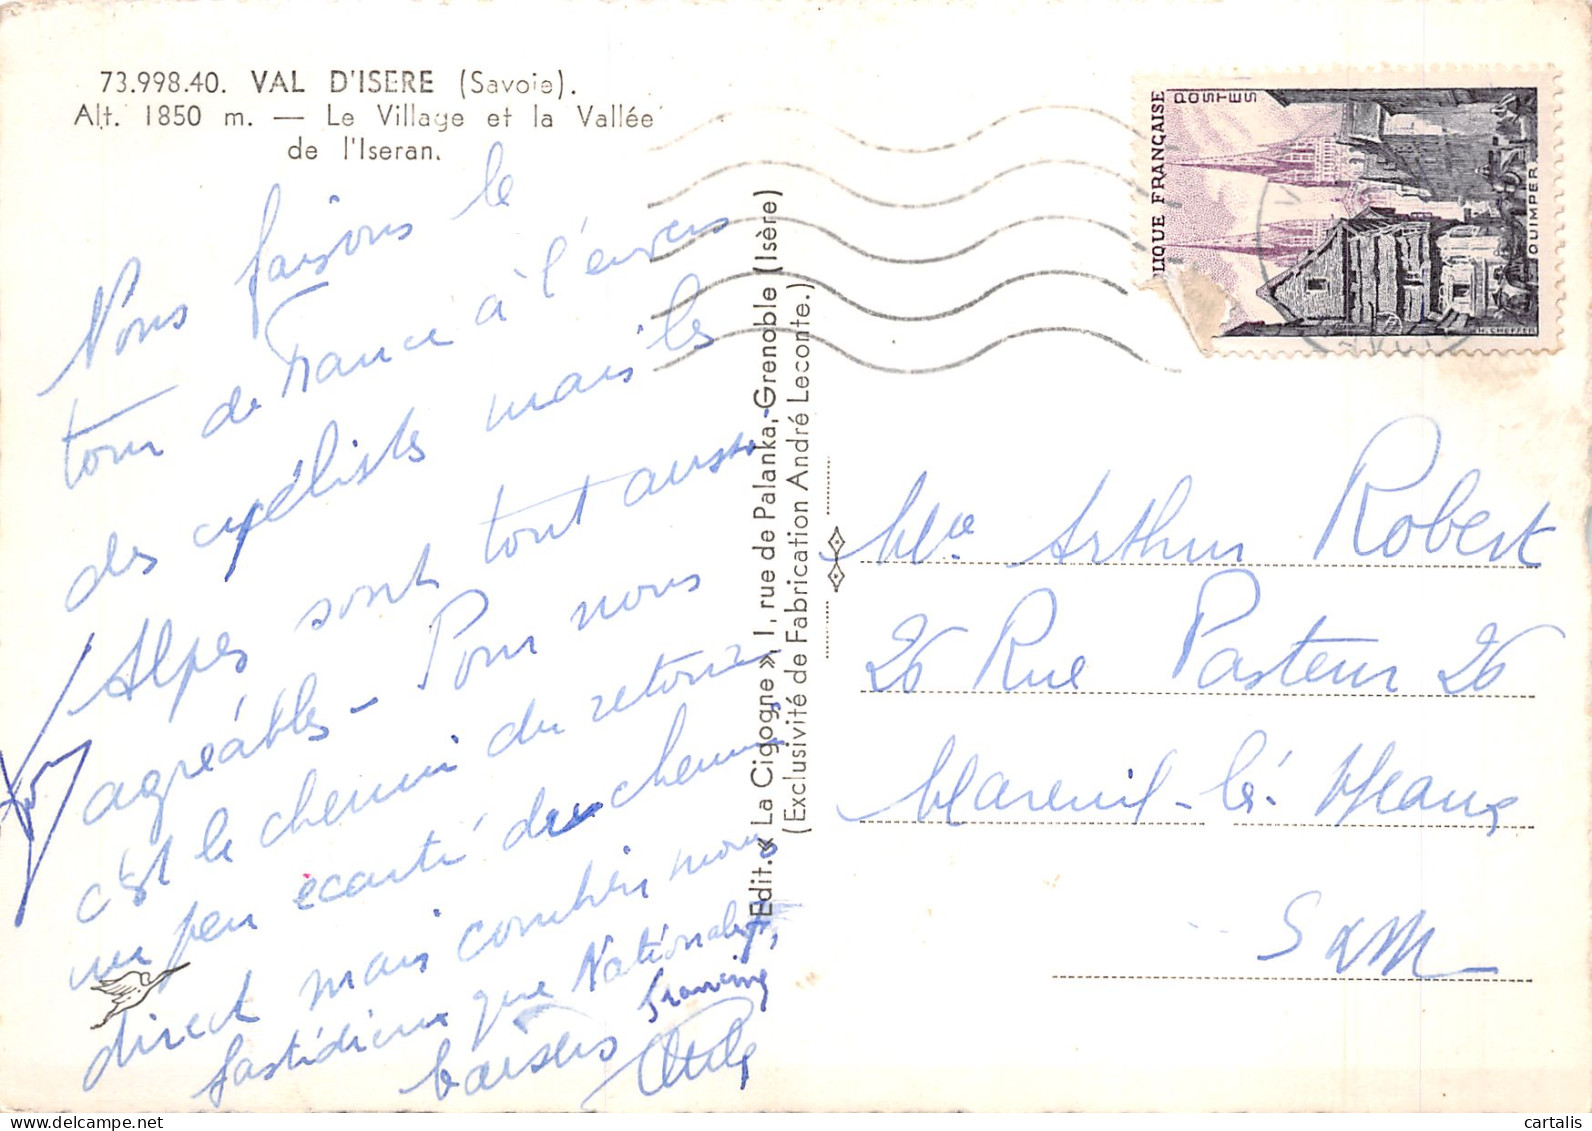 73.998.40. VAL D'ISERE (Savoie).
Alt. 1850 m. — Le Village et la Vallée
de l'Iseran.
Nous faisons le
tour de France à l'envers
des cyclistes mais les
Alpes sont tout aussi
agréables - Pour nous
c'est le chemin du retour
un peu écarté du chemin
direct mais combien moins
fastidieux que Nationales,
baisers
Edit. « La Cigogne » 1, rue de Palanka, Grenoble (Isère)
(Exclusivité de Fabrication André Leconte.)
LIQUE FRANÇAISE
POSTES
QUIMPER
H. CHEFFER
Mce Arthur Robert
26 Rue Pasteur 26
Mareuil-lé-Meaux
S &M
cartalis